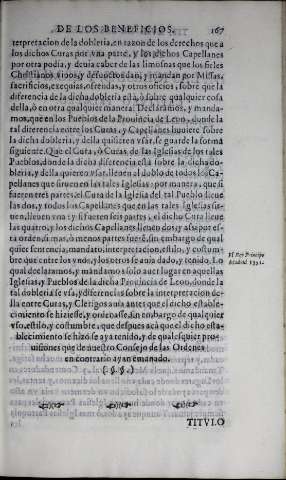 DE LOS BENEFICIOS. 167
terpretacion de la dobleria, en razon de los derechos que a
los dichos Curas por vna parte, y los dichos Capellanes
por otra podia, y deuia caber de las limosnas que los fieles
Christianos viuos, y defunctos dan, y mandan por Missas,
sacrificios, exequias, ofrendas, y otros oficios, sobre que la
diferencia de la dicha dobleria està, ò sobre qualquier cosa
della, ò en otra qualquier manera: Declaramos, y manda-
mos, que en los Pueblos de la Prouincia de Leon, donde la
tal diferencia entre los Curas, y Capellanes huuiere sobre
la dicha dobleria, y della quisieren vsar, se guarde la forma
siguiente. Que el Cura, ò Curas de las Iglesias de los tales
Pueblos, donde la dicha diferencia està sobre la dicha do-
bleria, y della quieren vsar, lleuen al doblo de todos los Ca-
pellanes que siruen en las tales Iglesias: por manera, que si
fueren tres partes, el Cura de la Iglesia del tal Pueblo lleue
las dos, y todos los Capellanes que en las tales Iglesias
uen, lleuen vna: y si fueren seis partes, el dicho Cura lleue
las quatro, y los dichos Capellanes lleuen dos: y assi por es-
ta orden, si mas, ò menos partes fuere, sin embargo de qual
quier sentencia, mandato, interpretacion, estilo, y costum-
bre que entre los vnos, y los otros se aya dado, y tenido. Lo
qual declaramos, y mandamos solo auer lugar en aquellas
Iglesias, y Pueblos de la dicha Prouincia de Leon, donde la
tal dobleria se vsa, y diferencias sobre la interpretacion de-
lla entre Curas, y Clerigos auia antes que el dicho estable-
cimiento se hiziesse, y ordenasse, sin embargo de qualquier
vso, estilo, y costumbre, que despues acà que el dicho esta-
blecimiento se hizo se aya tenido, y de qualesquier pro-
uisiones que de nuestro Consejo de las Ordenes
en contrario ayan emanado.
(.§.§.)
El Rey Principe
Madrid 1551.
TITVLO